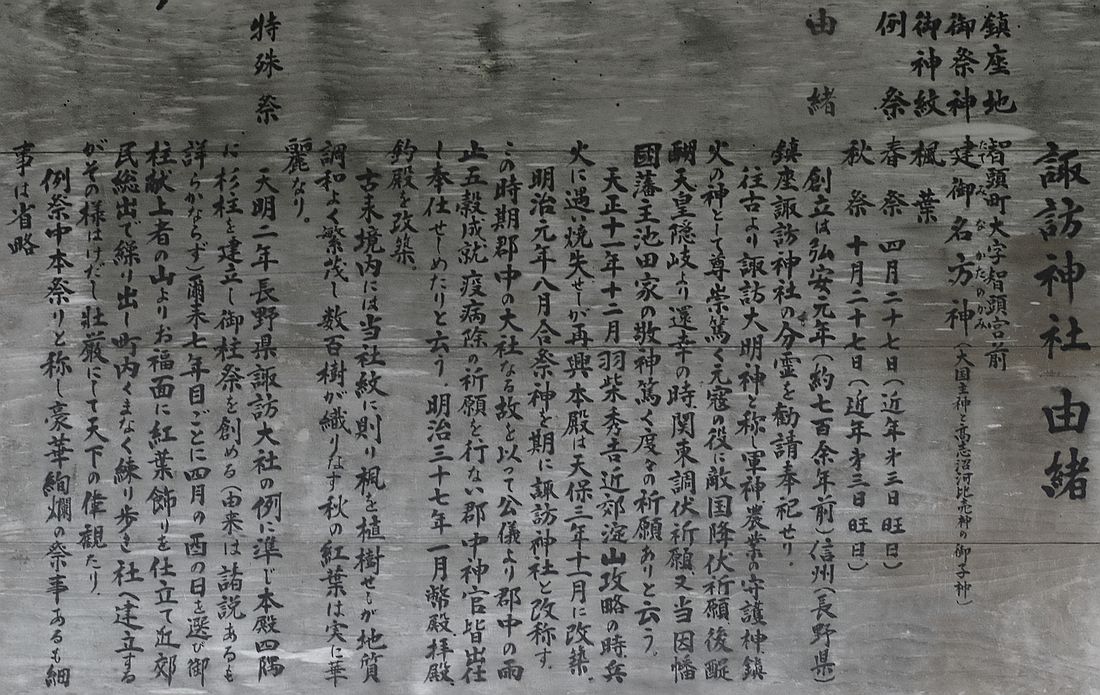 諏訪神社由緒
鎮座地 智頭町大字智頭宮前
御祭神 建御名方神(大国主神と高志沼河比売神の御子神)
たけみなかたのかみ
御神紋 楓葉
例祭 春祭 四月二十七日(近年第三日旺日)
秋祭 十月二十七日(近年第三日旺日)
由緒 創立は弘安元年(約七百余年前)信州(長野県)
鎮座諏訪神社の分霊を勧請奉祀せり。
往古より諏訪大明神と称し軍神農業の守護神鎮
火の神として尊崇篤く元寇の役に敵国降伏祈願後醍
醐天皇隠岐より還幸の時関東調伏祈願又当因幡
國藩主池田家の敬神篤く度々の祈願ありと云う。
天正十一年十二月羽柴秀吉近郊淀山攻略の時兵
火に遇い焼失せしが再興本殿は天保三年十一月に改築。
明治元年八月合祭神を期に諏訪神社と改称す。
この時期郡中の大社なる故を以って公儀より郡中の雨
止五穀成就疫病除の祈願を行ない郡中神官皆出仕
し奉仕せしめたりと云う。明治三十七年一月幣殿、拝殿、
釣殿を改築。
古来境内には当社紋に則り楓を植樹せもが地質
調和よく繁茂し数百樹が織りなす秋の紅葉は実に華
麗なり。
特殊祭 天明二年長野県諏訪大社の例に準じ本殿四隅
に杉柱を建立し御柱祭を創める(由来は諸説あるも
詳らかならず)爾来七年目ごとに四月の酉の日を選び御
柱献上者の山よりお福面に紅葉飾りを仕立て近郊
民総出で繰り出し町内くまなく練り歩き社へ建立する
がその様はけだし壮厳にして天下の偉観たり。
例祭中本祭りと称し豪華絢爛の祭事あるも細
事は省略